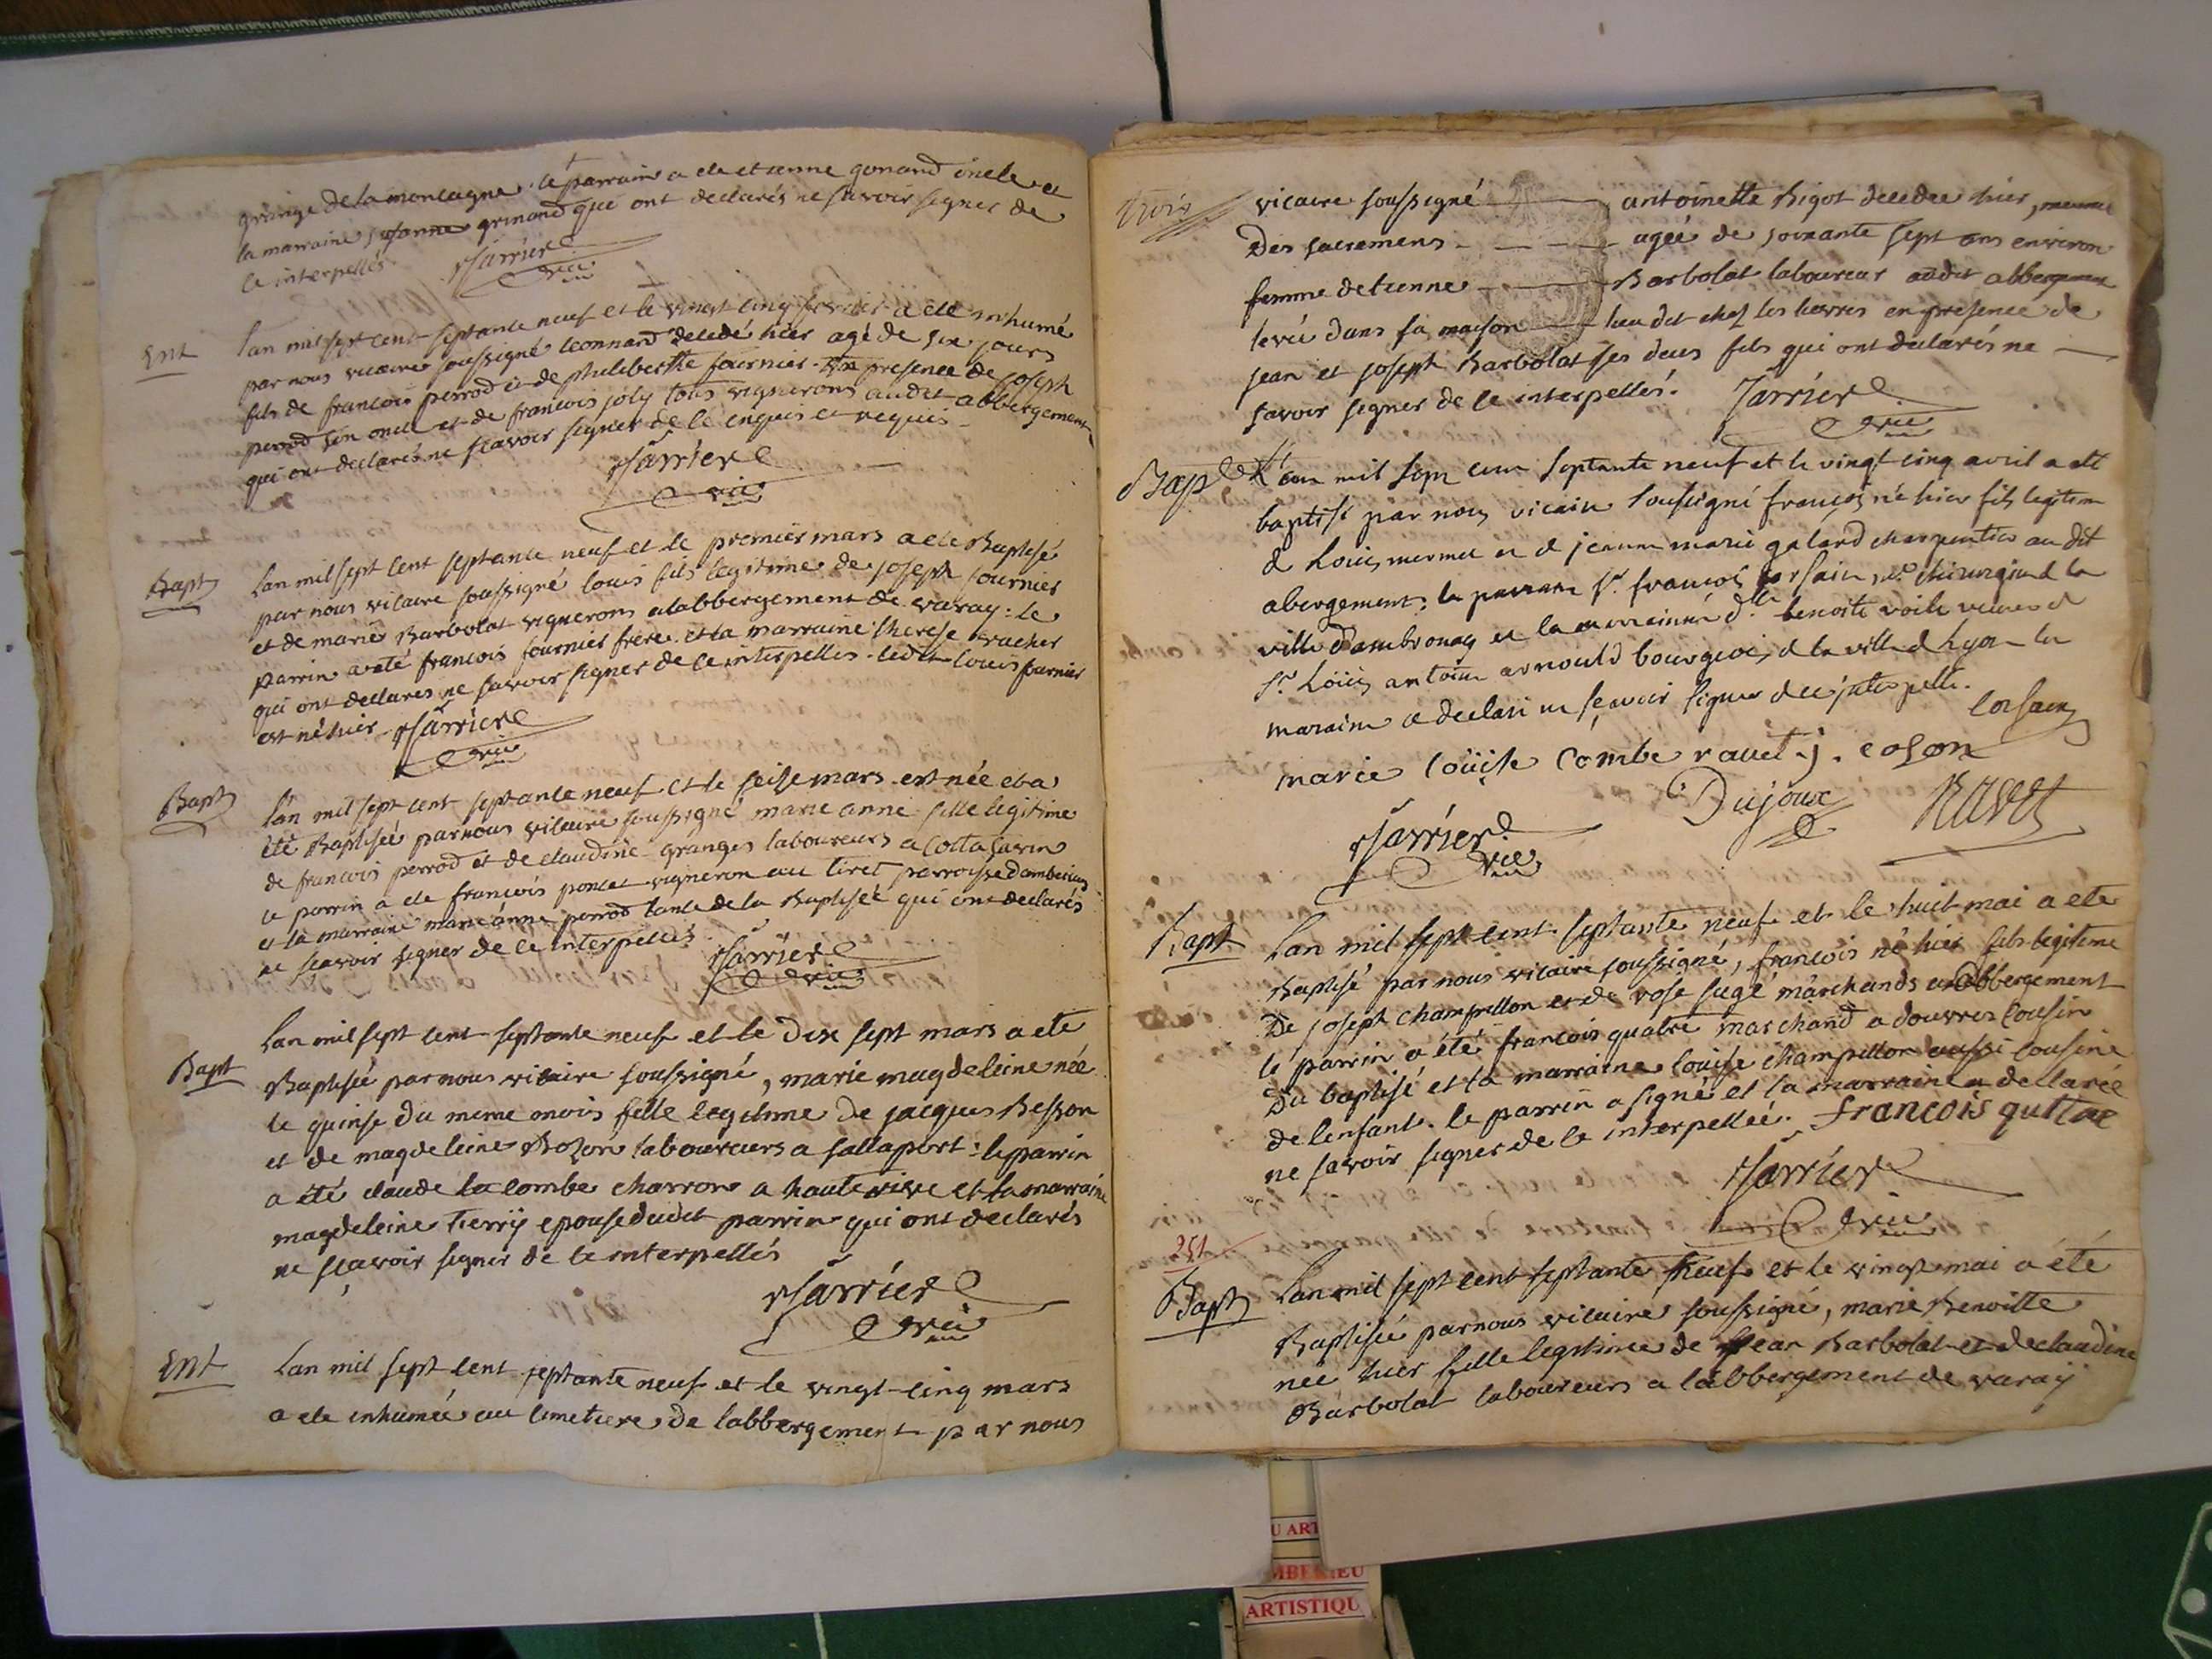 grange de la montagne. le parrain a ete etienne gonand oncle et
la marraine jeanne grinand qui ont declarés ne savoir signer de
ce interpellés Sarriere
vic
Ent
Lan mil sept cent septante neuf et le vingt cinq fevrier a ete inhumé
par nous vicaire soussigné leonnard decedé hier agé de six jours
fils de francois perrod et de philiberthe fournier. en presence de joseph
perrod son oncle et de francois joly tous vignerons audit abbergement
qui ont declarés ne scavoir signer de ce enquis et requis
Sarriere
vic
Bapt
Lan mil sept cent septante neuf et le premier mars a ete Baptisé
par nous vicaire soussigné louis fils legitime de joseph fournier
et de marie Barbolat vignerons a labbergement de varay: le
parrin a eté francois fournier frere et la marraine therese vacher
qui ont declares ne savoir signer de ce interpelles. ledit louis fournier
est né hier Sarriere
vic
Bapt
Lan mil sept cent septante neuf et le seise mars est née et a
été Baptisée par nous vicaire soussigné marie anne fille legitime
de francois perrod et de claudine granges laboureurs a Cotta savin
le parrin a ete francois poncet vigneron au tiret parroisse dambérieu
et la marraine marie anne perrod tante de la Baptisée qui ont declarés
ne scavoir signer de ce interpellés
Sarriere
vic
Bapt
Lan mil sept cent septante neuf et le dix sept mars a eté
Baptisée par nous vicaire soussigné, marie magdeleine née
le quinse du meme mois fille legitime de jacques Besson
et de magdeleine Bozon laboureurs a sallaport: le parrin
a été claude la combe charron a haute rive et la marraine
magdeleine tierry epouse dudit parrin qui ont declarés
ne sçavoir signer de ce interpellés
Sarriere
vic
Ent
Lan mil sept cent septante neuf et le vingt cinq mars
a ete inhumée au cimetiere de labbergement par nous
trois
vicaire soussigné antoinette Bigot decedee hier, munie
Des sacremens agée de soixante sept ans environ
femme detienne Barbolat laboureur audit abbergement
levée dans sa maison lieu dit chez les lievres en presence de
jean et joseph Barbolat ses deux fils qui ont declarés ne
savoir signer de ce interpellés. Sarriere
vic
Bap
L'an mil sept cent septante neuf et le vingt cinq avril a été
baptisé par nous vicaire soussigné françois né hier fils legitime
de Louis mermet et de jeanne marie galand charpentier au dit
abergement; le parrain sr. françois corsain, me chirurgien de la
ville d'ambronay et la marraine dlle benoite voile veuve de
sr. Loüis antoine arnould bourgeois de la ville de Lyon la
maraine a declaré ne sçavoir signer de ce interpellée.
Corsain
marie loüise Combe ravet j. coson
Dujoux
RAVET
Sarriere
vic
Bapt
Lan mil sept cent septante neuf et le huit mai a ete
Baptisé par nous vicaire soussigné, francois né hier fils legitime
De joseph champillon et de rose sugé marchands a labbergement
le parrin a été francois quatre marchand a douvres cousin
du baptisé et la marraine louise champillon aussi cousine
de lenfant. le parrin a signé et la marraine a declarée
ne savoir signer de ce interpellée. francois quttre
Sarriere
vic
251
Bapt
Lan mil sept cent septante neuf et le vingt mai a été
Baptisée par nous vicaire soussigné, marie Benoitte
née hier fille legitimee de jean Barbolat et de claudine
Barbolat laboureurs a labbergement de varaÿ
U ART
MBERIEU
ARTISTIQU